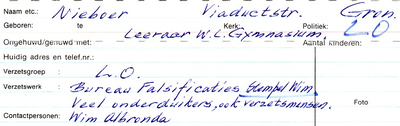 Naam etc.: Nieboer Viaductstr. Gron.
Geboren: te Kerk: Politiek: LO
Leeraar W.L. Gymnasium.
Ongehuwd/gehuwd met: Aantal kinderen:
Huidig adres en telef.nr.:
Verzetsgroep : L.O.
Verzetswerk : Bureau Falsificaties Stempel Wim.
Veel onderduikers, ook verzetsmensen.
Foto
Contactpersonen: Wim Albronda